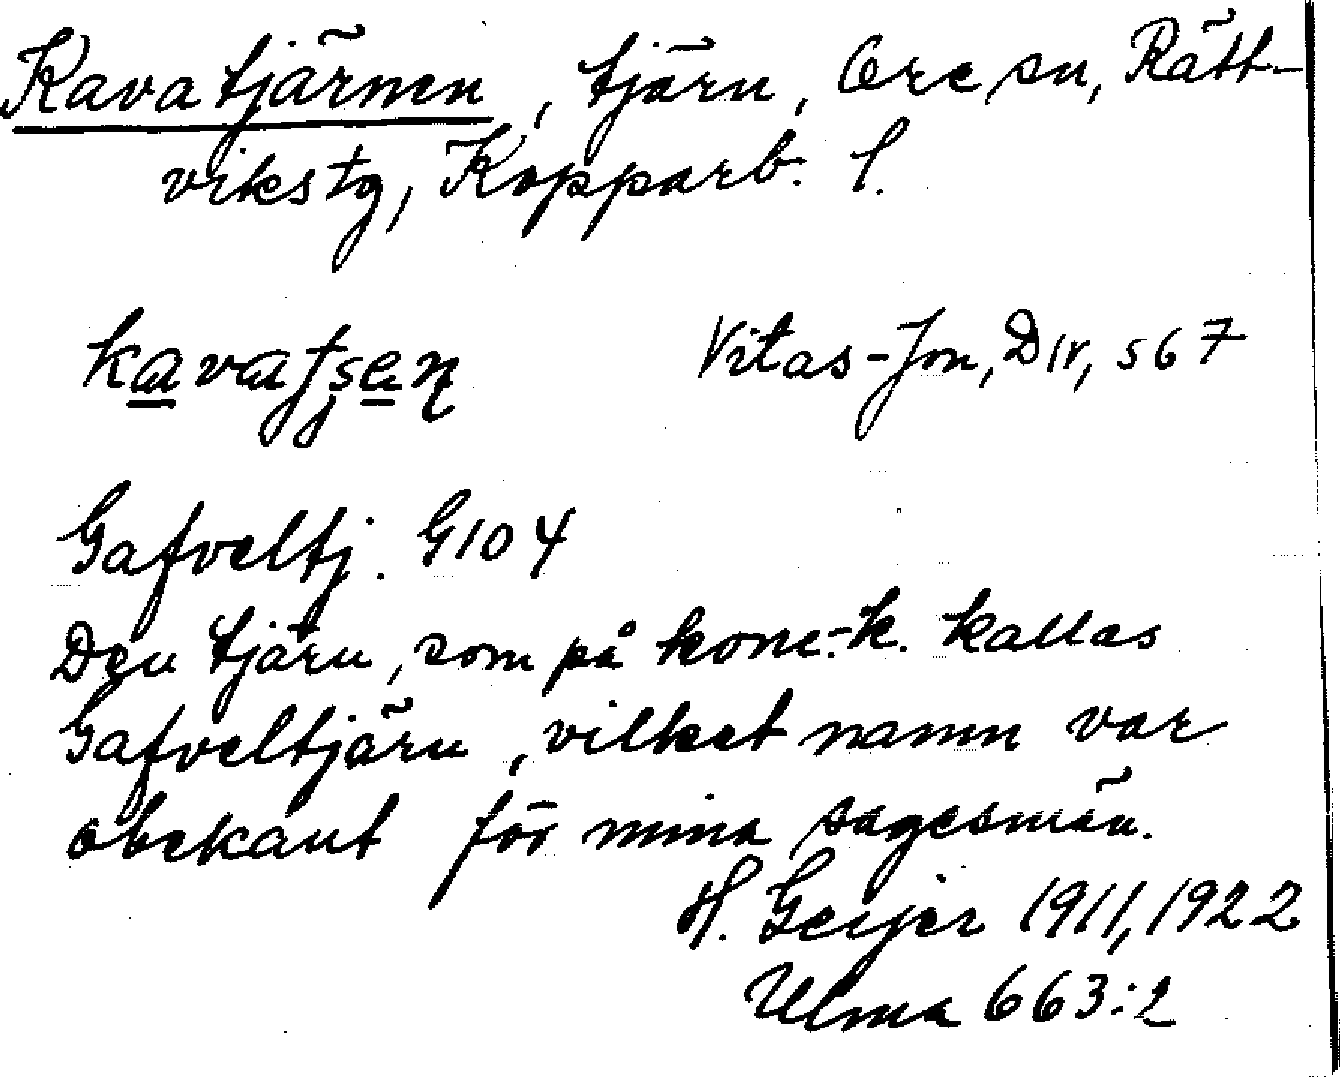 Kavatjärnen, tjärn, Ore sn, Rätt-
viks tg, Kopparb. l.
Vitas-Jon, D1r, s 67
Gafveltj. G104
Den tjärn, som på konc.-k. kallas
Gafveltjärn, vilket namn var
obekant för mina sagesmän.
H. Geijer 1911, 1922
Ulma 663:2